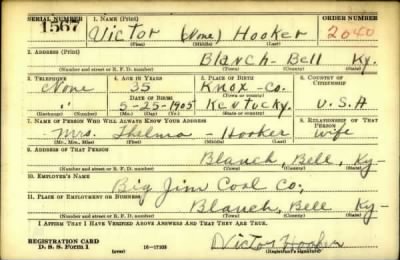 SERIAL NUMBER 1. NAME (Print) ORDER NUMBER
1567 Victor (None) Hooker 2040
(First) (Middle) (Last)
2. ADDRESS (Print)
Blanch- Bell Ky.
(Number and street or R. F. D. number) (Town) (County) (State)
3. TELEPHONE 4. AGE IN YEARS 5. PLACE OF BIRTH 6. COUNTRY OF CITIZENSHIP
None 35 Knox-Co.
DATE OF BIRTH (Town or county)
" 5-25-1905 Kentucky. U.S.A
(Exchange) (Number) (Mo.) (Day) (Yr.) (State or country)
7. NAME OF PERSON WHO WILL ALWAYS KNOW YOUR ADDRESS 8. RELATIONSHIP OF THAT PERSON
Mrs. Thelma - Hooker wife
(Mr., Mrs., Miss) (First) (Middle) (Last)
9. ADDRESS OF THAT PERSON
Blanch, Bell, Ky-
(Number and street or R. F. D. number) (Town) (County) (State)
10. EMPLOYER'S NAME
Big Jim Coal Co,
11. PLACE OF EMPLOYMENT OR BUSINESS
Blanch, Bell Ky-
(Number and street or R. F. D. number) (Town) (County) (State)
I AFFIRM THAT I HAVE VERIFIED ABOVE ANSWERS AND THAT THEY ARE TRUE.
REGISTRATION CARD
D. S. S. Form 1 (over) 16-17105 Victor Hooker
(Registrant's signature)